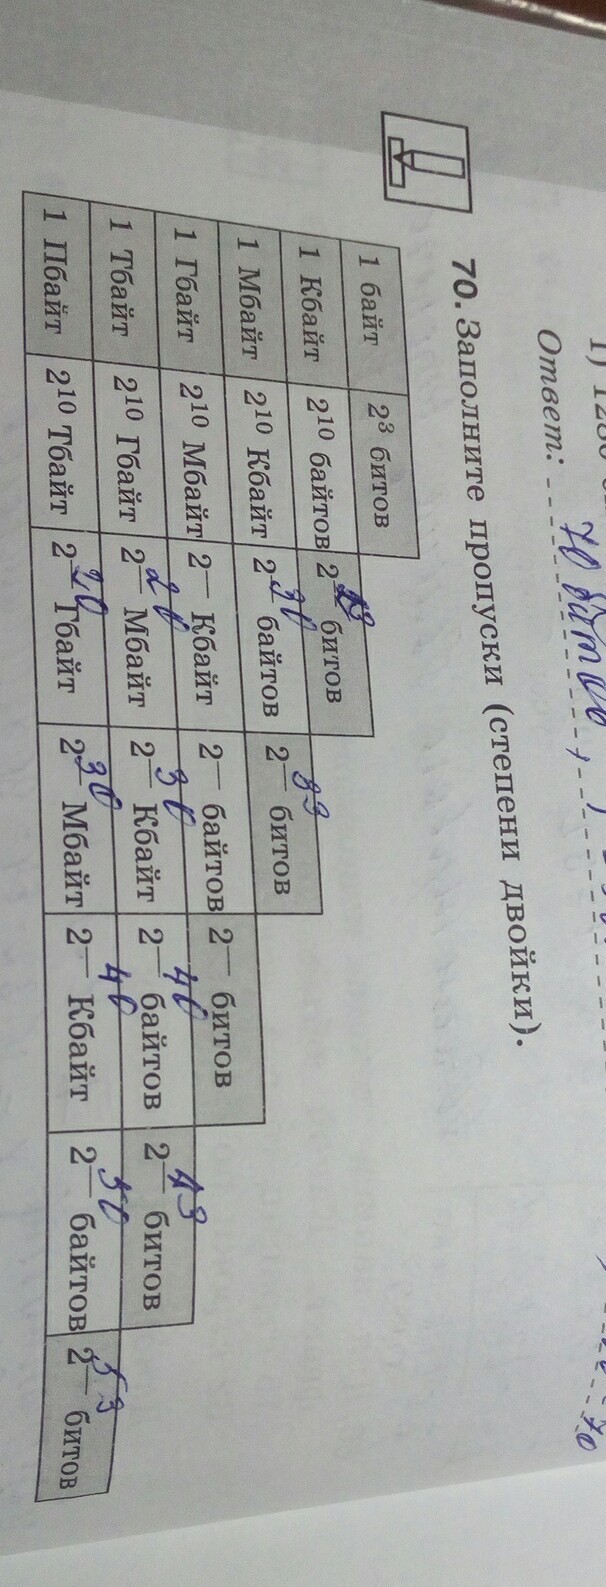 Ответ: 70 битов,
70
70. Заполните пропуски (степени двойки).
1 байт 2³ битов
1 Кбайт 2¹⁰ байтов 2¹³ битов
1 Мбайт 2¹⁰ Кбайт 2³⁰ байтов 2³³ битов
1 Гбайт 2¹⁰ Мбайт 2— Кбайт 2— байтов 2— битов
1 Тбайт 2¹⁰ Гбайт 2²⁰ Мбайт 2³⁰ Кбайт 2⁴⁰ байтов 2⁴³ битов
1 Пбайт 2¹⁰ Тбайт 2²⁰ Гбайт 2³⁰ Мбайт 2⁴⁰ Кбайт 2⁵⁰ байтов 2⁵³ битов